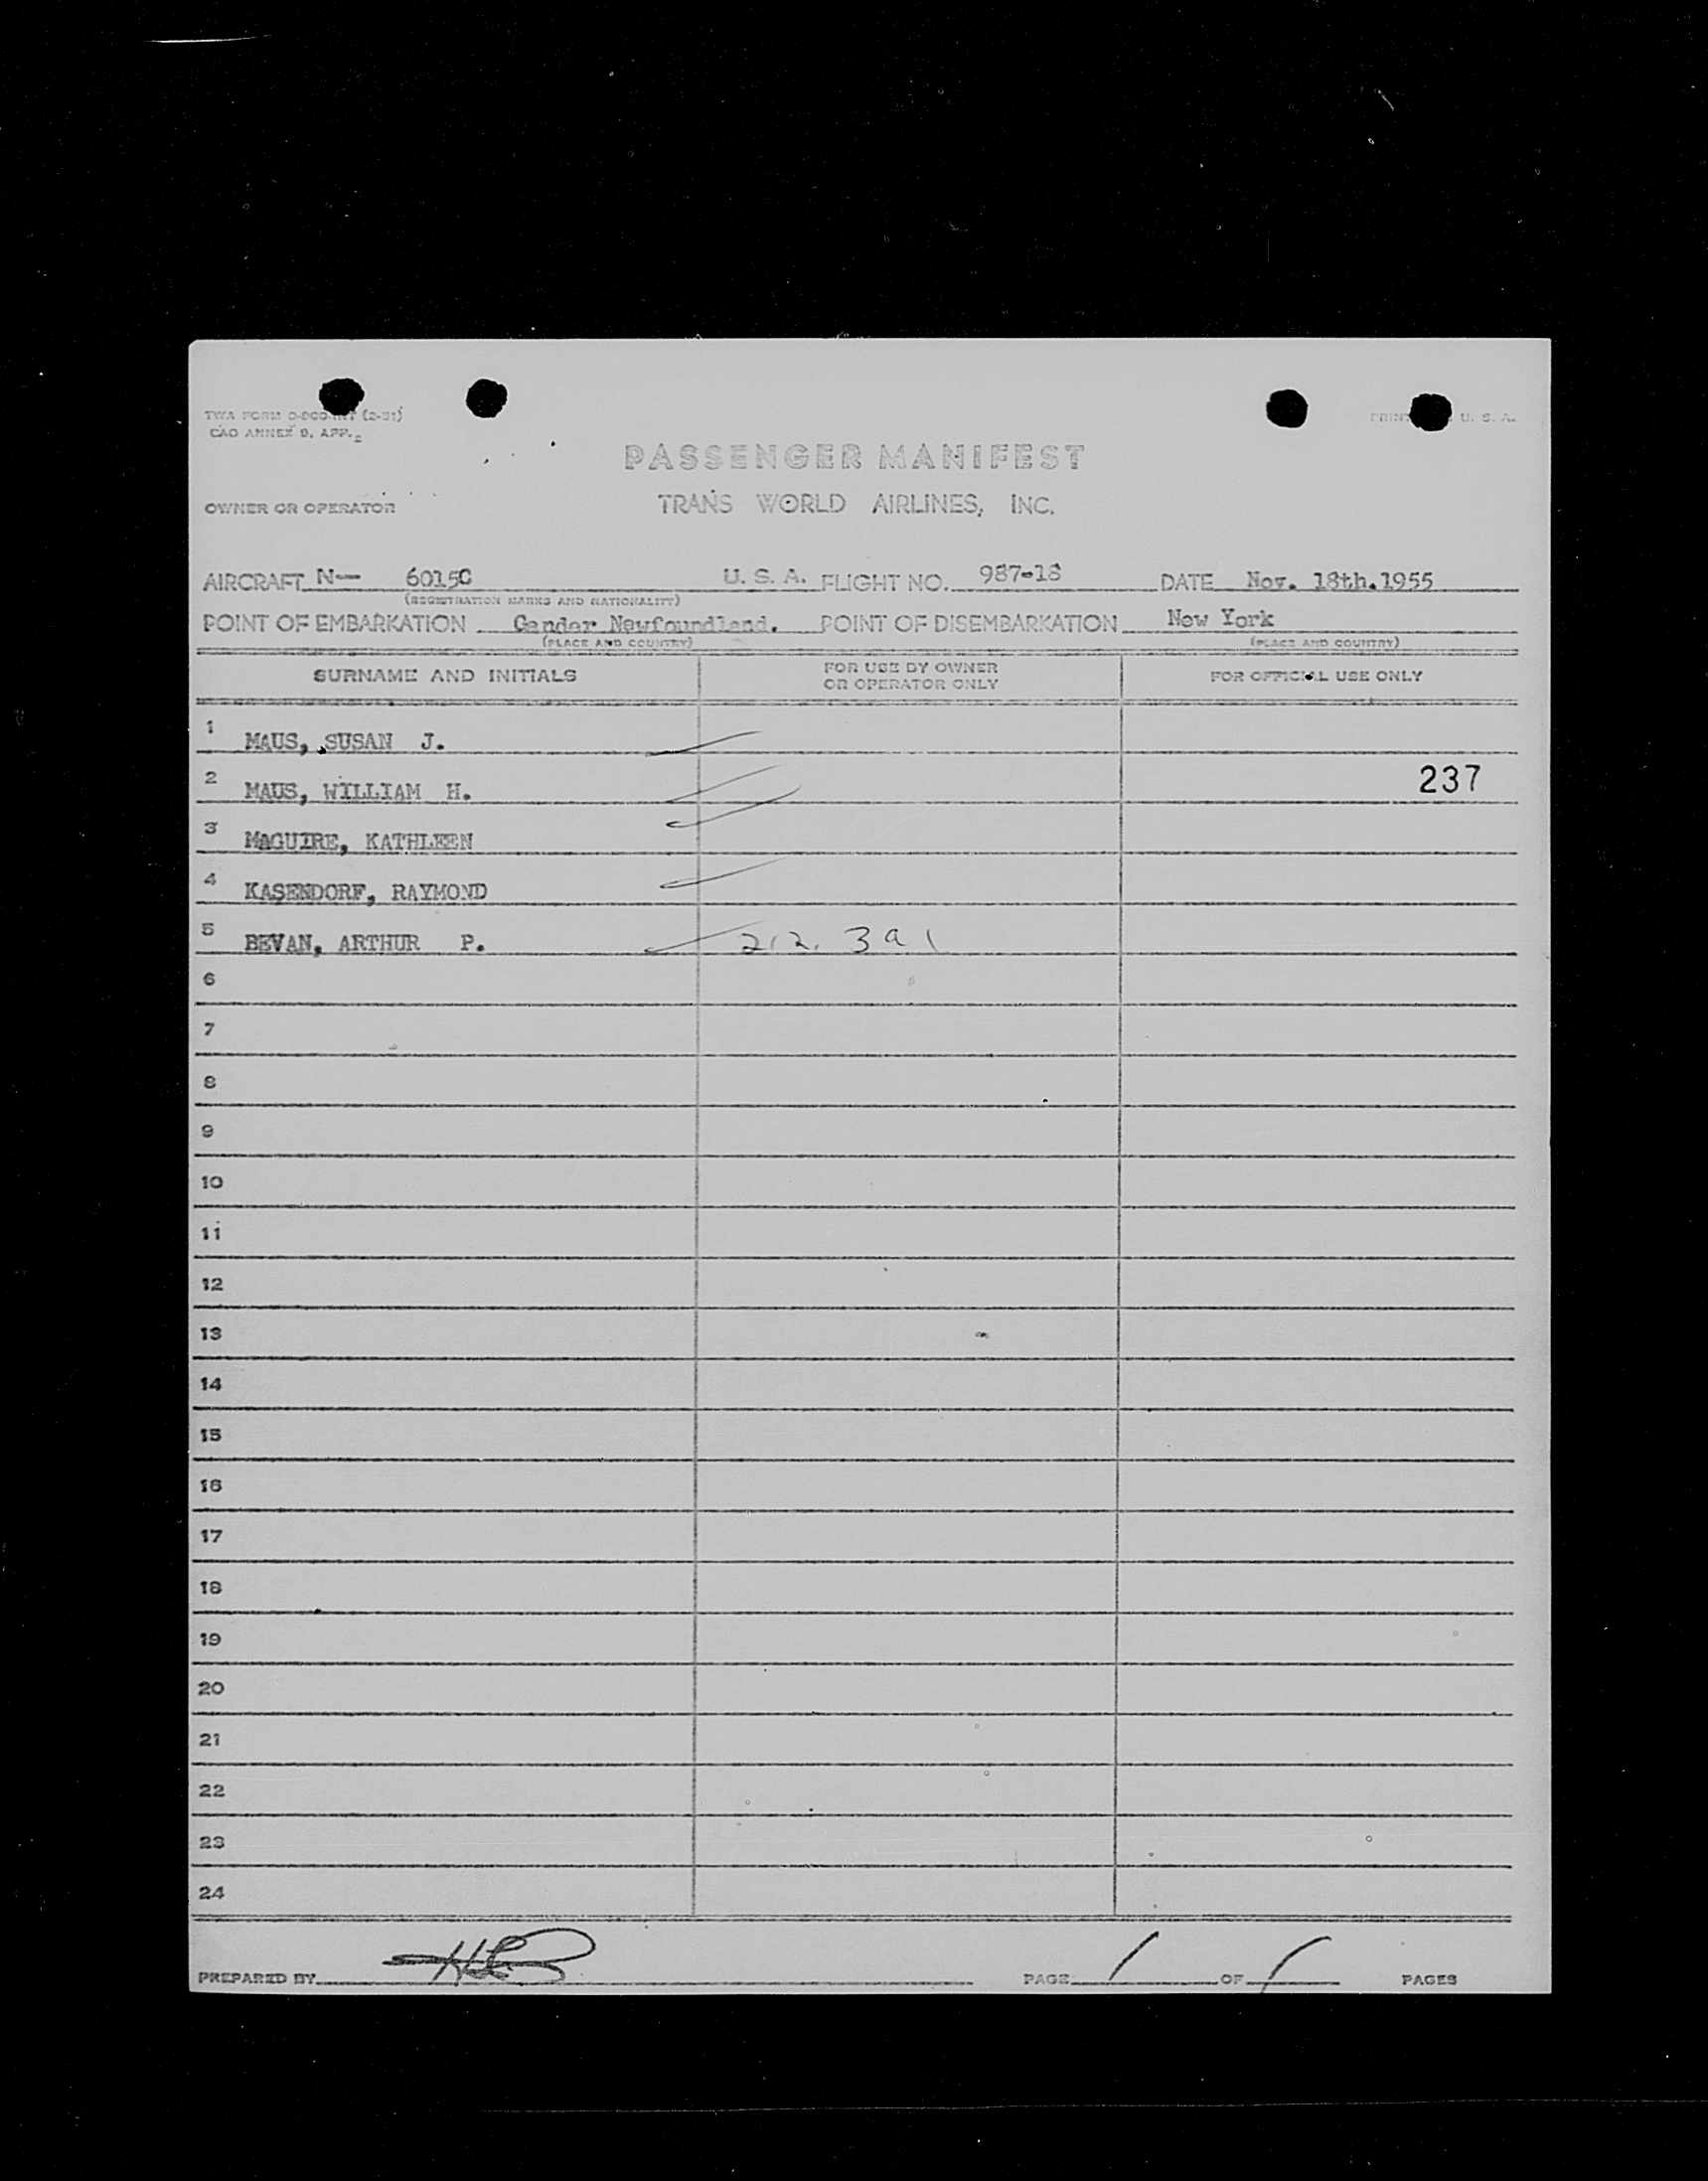 TWA FORM
CAO ANNEX 9, APP. 2
U. S. A.
PASSENGER MANIFEST
OWNER OR OPERATOR TRANS WORLD AIRLINES, INC.
AIRCRAFT N— 6015C U. S. A. FLIGHT NO. 987-18 DATE Nov. 18th.1955
(REGISTRATION MARKS AND NATIONALITY)
POINT OF EMBARKATION Gander Newfoundland. POINT OF DISEMBARKATION New York
(PLACE AND COUNTRY) (PLACE AND COUNTRY)
SURNAME AND INITIALS FOR USE BY OWNER OR OPERATOR ONLY FOR OFFICIAL USE ONLY
1 MAUS, SUSAN J.
2 MAUS, WILLIAM H. 237
3 MAGUIRE, KATHLEEN
4 KASENDORF, RAYMOND
5 BEVAN, ARTHUR P.
6
7
8
9
10
11
12
13
14
15
16
17
18
19
20
21
22
23
24
PREPARED BY PAGE 1 OF 1 PAGES